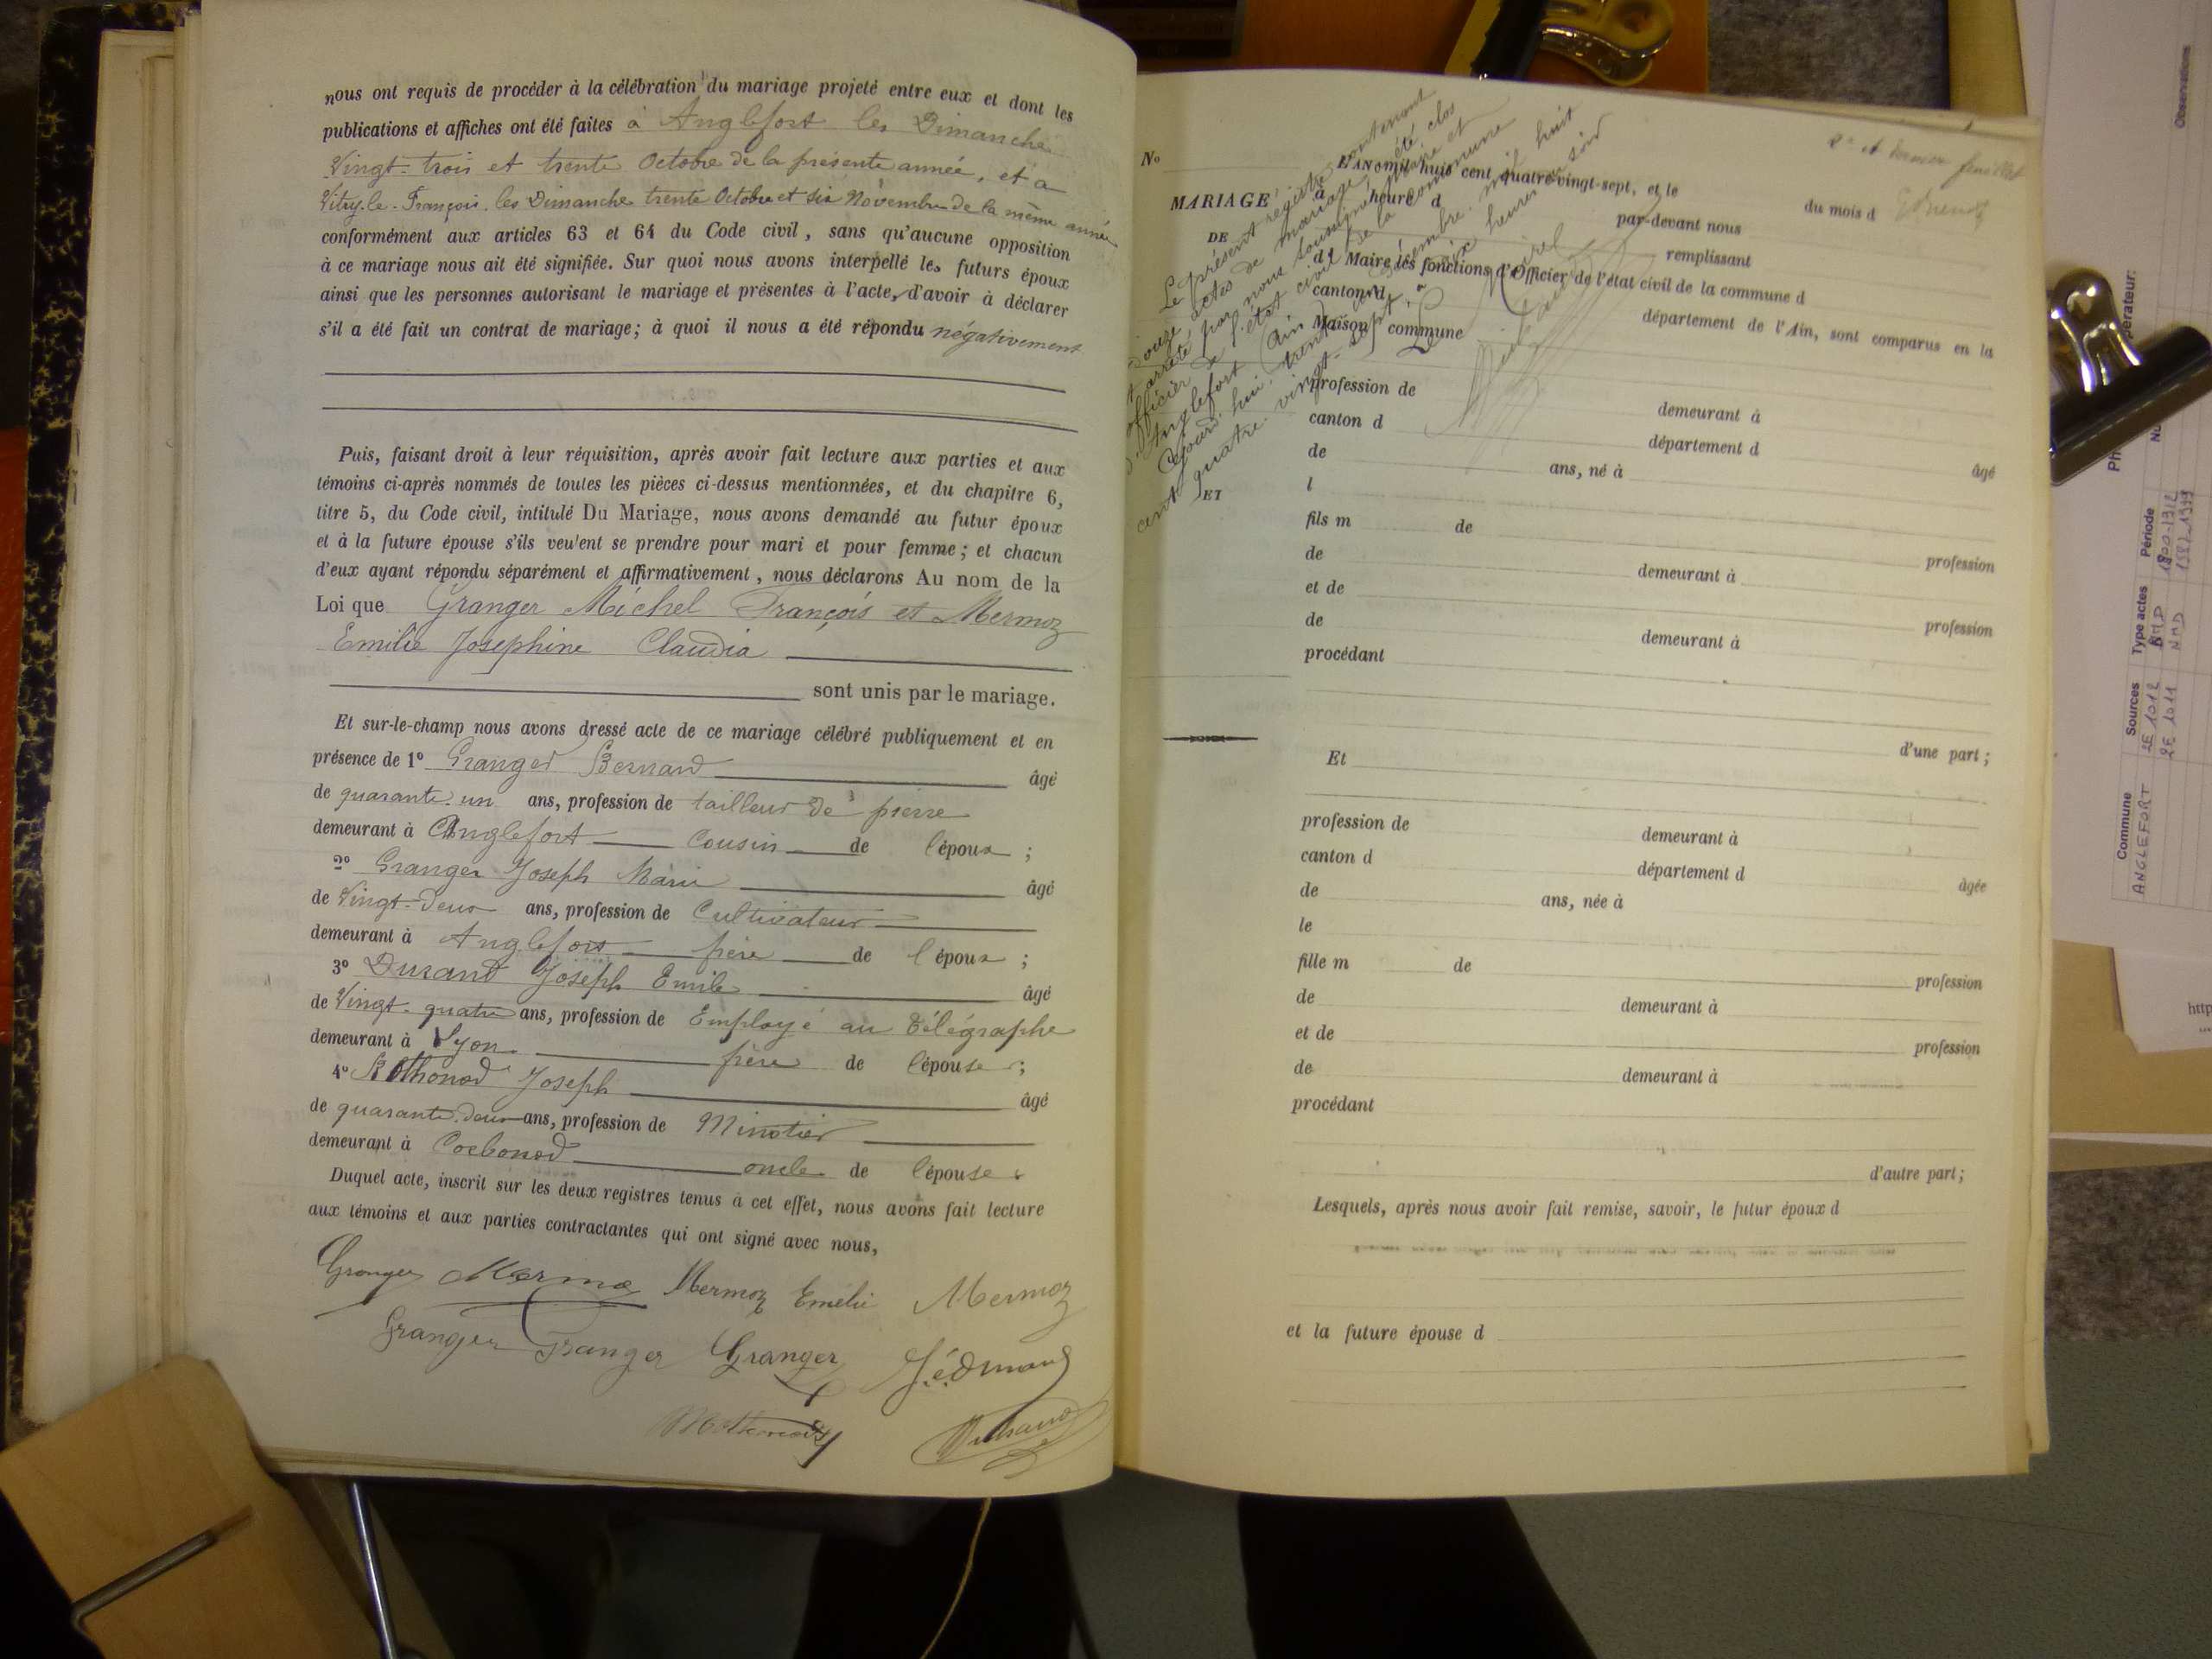 nous ont requis de procéder à la célébration du mariage projeté entre eux et dont les
publications et affiches ont été faites à Anglefort les Dimanche
Vingt-trois et trente Octobre de la présente année, et à
Vitry-le-François les Dimanche trente Octobre et six Novembre de la même année
conformément aux articles 63 et 64 du Code civil, sans qu'aucune opposition
à ce mariage nous ait été signifiée. Sur quoi nous avons interpellé les futurs époux
ainsi que les personnes autorisant le mariage et présentes à l'acte, d'avoir à déclarer
s'il a été fait un contrat de mariage; à quoi il nous a été répondu négativement
Puis, faisant droit à leur réquisition, après avoir fait lecture aux parties et aux
témoins ci-après nommés de toutes les pièces ci-dessus mentionnées, et du chapitre 6,
titre 5, du Code civil, intitulé Du Mariage, nous avons demandé au futur époux
et à la future épouse s'ils veulent se prendre pour mari et pour femme; et chacun
d'eux ayant répondu séparément et affirmativement, nous déclarons Au nom de la
Loi que Granger Michel François et Mermoz
Emilie Josephine Claudia
sont unis par le mariage.
Et sur-le-champ nous avons dressé acte de ce mariage célébré publiquement et en
présence de 1º Granger Bernard âgé
de quarante-un ans, profession de tailleur de pierre
demeurant à Anglefort cousin de l'époux ;
2º Granger Joseph Marie âgé
de Vingt-deux ans, profession de Cultivateur
demeurant à Anglefort frère de l'époux ;
3º Durand Joseph Emile âgé
de Vingt-quatre ans, profession de Employé au Télégraphe
demeurant à Lyon frère de l'épouse ;
4º Mothonod Joseph âgé
de quarante-deux ans, profession de Minotier
demeurant à Corbonod oncle de l'épouse.
Duquel acte, inscrit sur les deux registres tenus à cet effet, nous avons fait lecture
aux témoins et aux parties contractantes qui ont signé avec nous,
Granger Mermoz Mermoz Emélie Mermoz
Granger Granger Granger
2e et dernier feuillet
Nº
L'AN mil huit cent quatre-vingt-sept, et le du mois d
à heure d par-devant nous
MARIAGE
DE
remplissant
d Maire les fonctions d'Officier de l'état civil de la commune d
canton d département de l'Ain, sont comparus en la
Maison commune
Le présent registre contenant
douze actes de mariage, a été clos
et arrêté par nous soussigné, maire et
officier de l'état civil de la commune
d'Anglefort (Ain)
Cejourd'hui, trente un Décembre mil huit
cent quatre-vingt-sept, à six heures du soir
profession de demeurant à
canton d département d âgé
de ans, né à
l
ET
fils m de profession
de demeurant à
et de profession
de demeurant à
procédant
d'une part ;
Et
profession de demeurant à
canton d département d âgée
de ans, née à
le
fille m de profession
de demeurant à
et de profession
de demeurant à
procédant
d'autre part ;
Lesquels, après nous avoir fait remise, savoir, le futur époux d
et la future épouse d
Observations
Commune Sources Type actes Période
ANGLEFORT 2E 1012
2E 1011
NMD
http